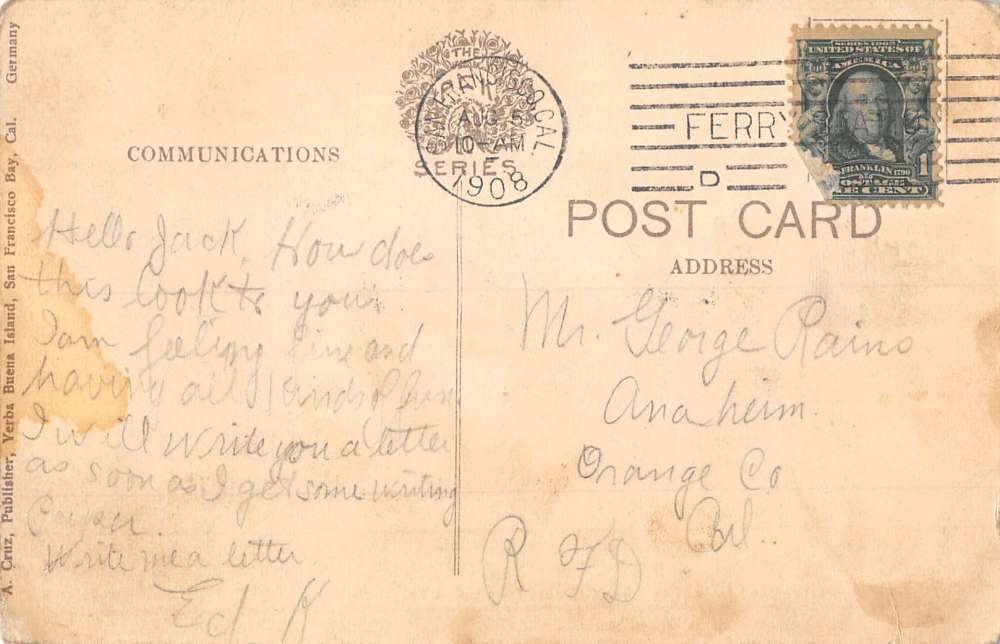 A. Cruz, Publisher, Yerba Buena Island, San Francisco Bay, Cal. Germany
COMMUNICATIONS
THE
SERIES
SAN FRANCISCO, CAL.
AUG 5
10-AM
1908
FERRY STA.
D
SERIES 1902
UNITED STATES OF
AMERICA
FRANKLIN
1
POSTAGE
ONE CENT
POST CARD
ADDRESS
Hello Jack, How does
this look to you.
I am feeling fine and
having all kinds of fun
I will write you a letter
as soon as I get some writing
paper.
Write me a letter
Ed K
Mr. George Rains
Anaheim.
Orange Co
Cal.
R F D